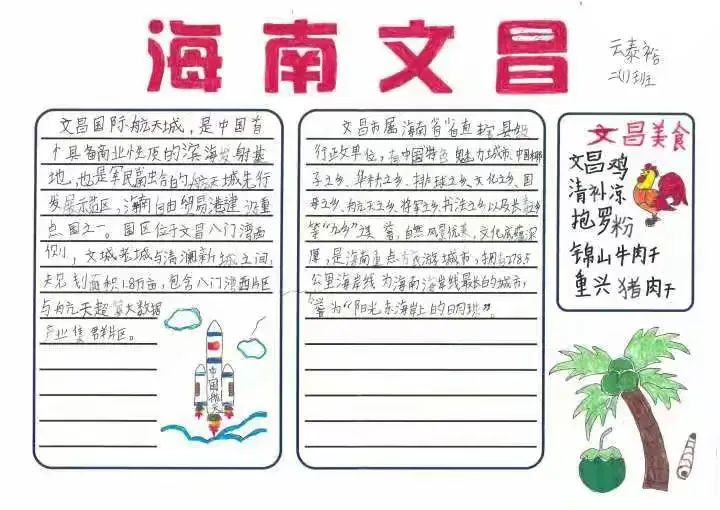 海南文昌
云泰裕
二(1)班
文昌国际航天城，是中国首
个具备商业性质的滨海发射基
地，也是军民融合的航天城先行
发展示范区，海南自由贸易港建设重
点园区之一。园区位于文昌八门湾西
侧，文城老城与清澜新城之间，
规划面积1.8万亩，包含八门湾西片区
与航天超算大数据
产业集群片区。
中国航天
文昌市属海南省省直辖县级
行政单位，有中国特色魅力城市、中国椰
子之乡、华侨之乡、排球之乡、文化之乡、国
母之乡、航天之乡、将军之乡、书法之乡以及长寿之乡
等"九乡"之美誉，自然风景优美，文化底蕴深
厚，是海南重点旅游城市，拥有278.5
公里海岸线为海南海岸线最长的城市，
誉为"阳光东海岸上的明珠"。
文昌美食
文昌鸡
清补凉
抱罗粉
锦山牛肉干
重兴猪肉干